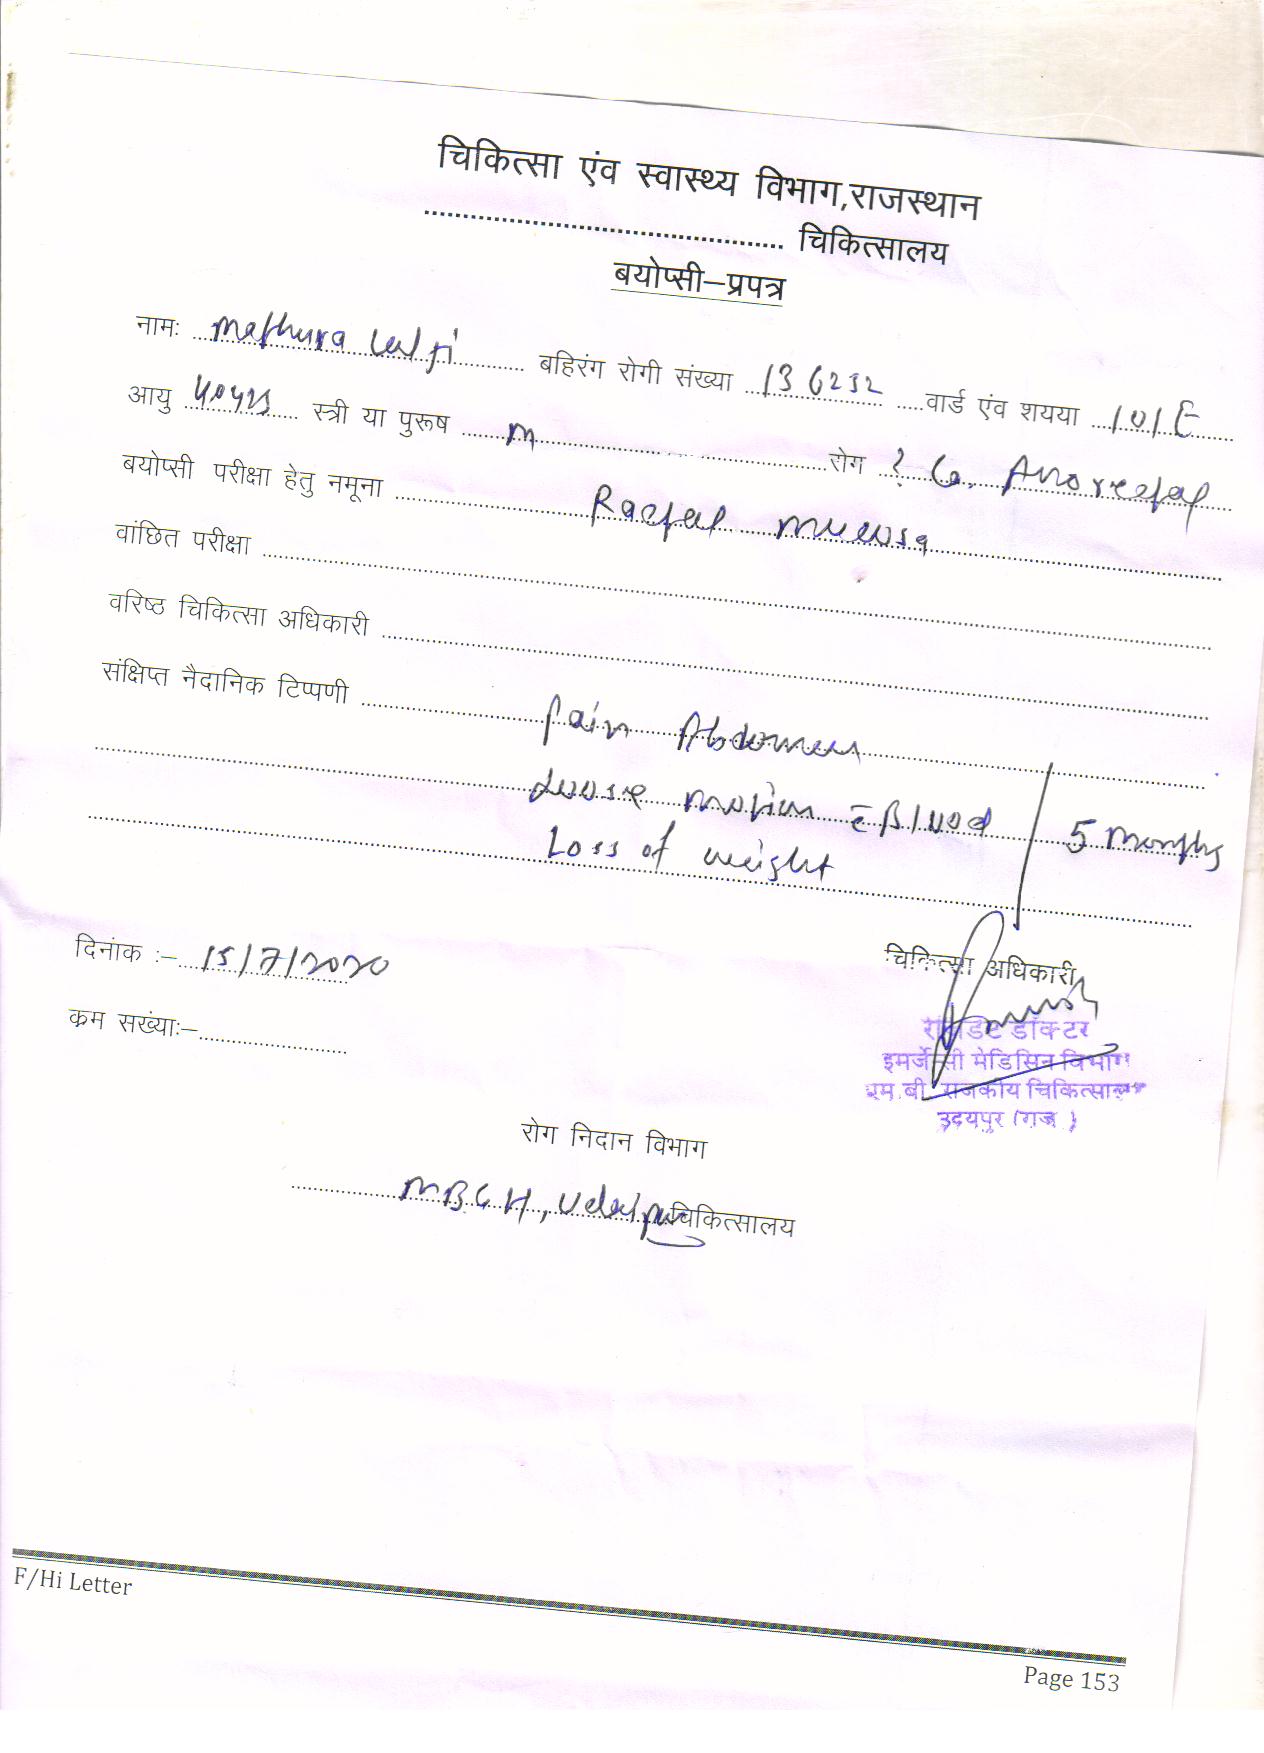 चिकित्सा एंव स्वास्थ्य विभाग,राजस्थान
.............................................. चिकित्सालय
बयोप्सी–प्रपत्र
नामः Mathura Lal ji बहिरंग रोगी संख्या 136232 वार्ड एंव शयया 101E
आयु 40yrs स्त्री या पुरूष M रोग ? Ca. Anorectal
बयोप्सी परीक्षा हेतु नमूना Rectal mucosa
वांछित परीक्षा
वरिष्ठ चिकित्सा अधिकारी
संक्षिप्त नैदानिक टिप्पणी Pain Abdomen
Loose motion c̄ Blood / 5 months
Loss of weight
दिनांक :– 15/7/2020
चिकित्सा अधिकारी
क्रम सख्याः–
रेजीडेंट डॉक्टर
इमर्जेन्सी मेडिसिन विभाग
एम.बी. राजकीय चिकित्सालय
उदयपुर (राज.)
रोग निदान विभाग
MBGH, Udaipur चिकित्सालय
F/Hi Letter
Page 153